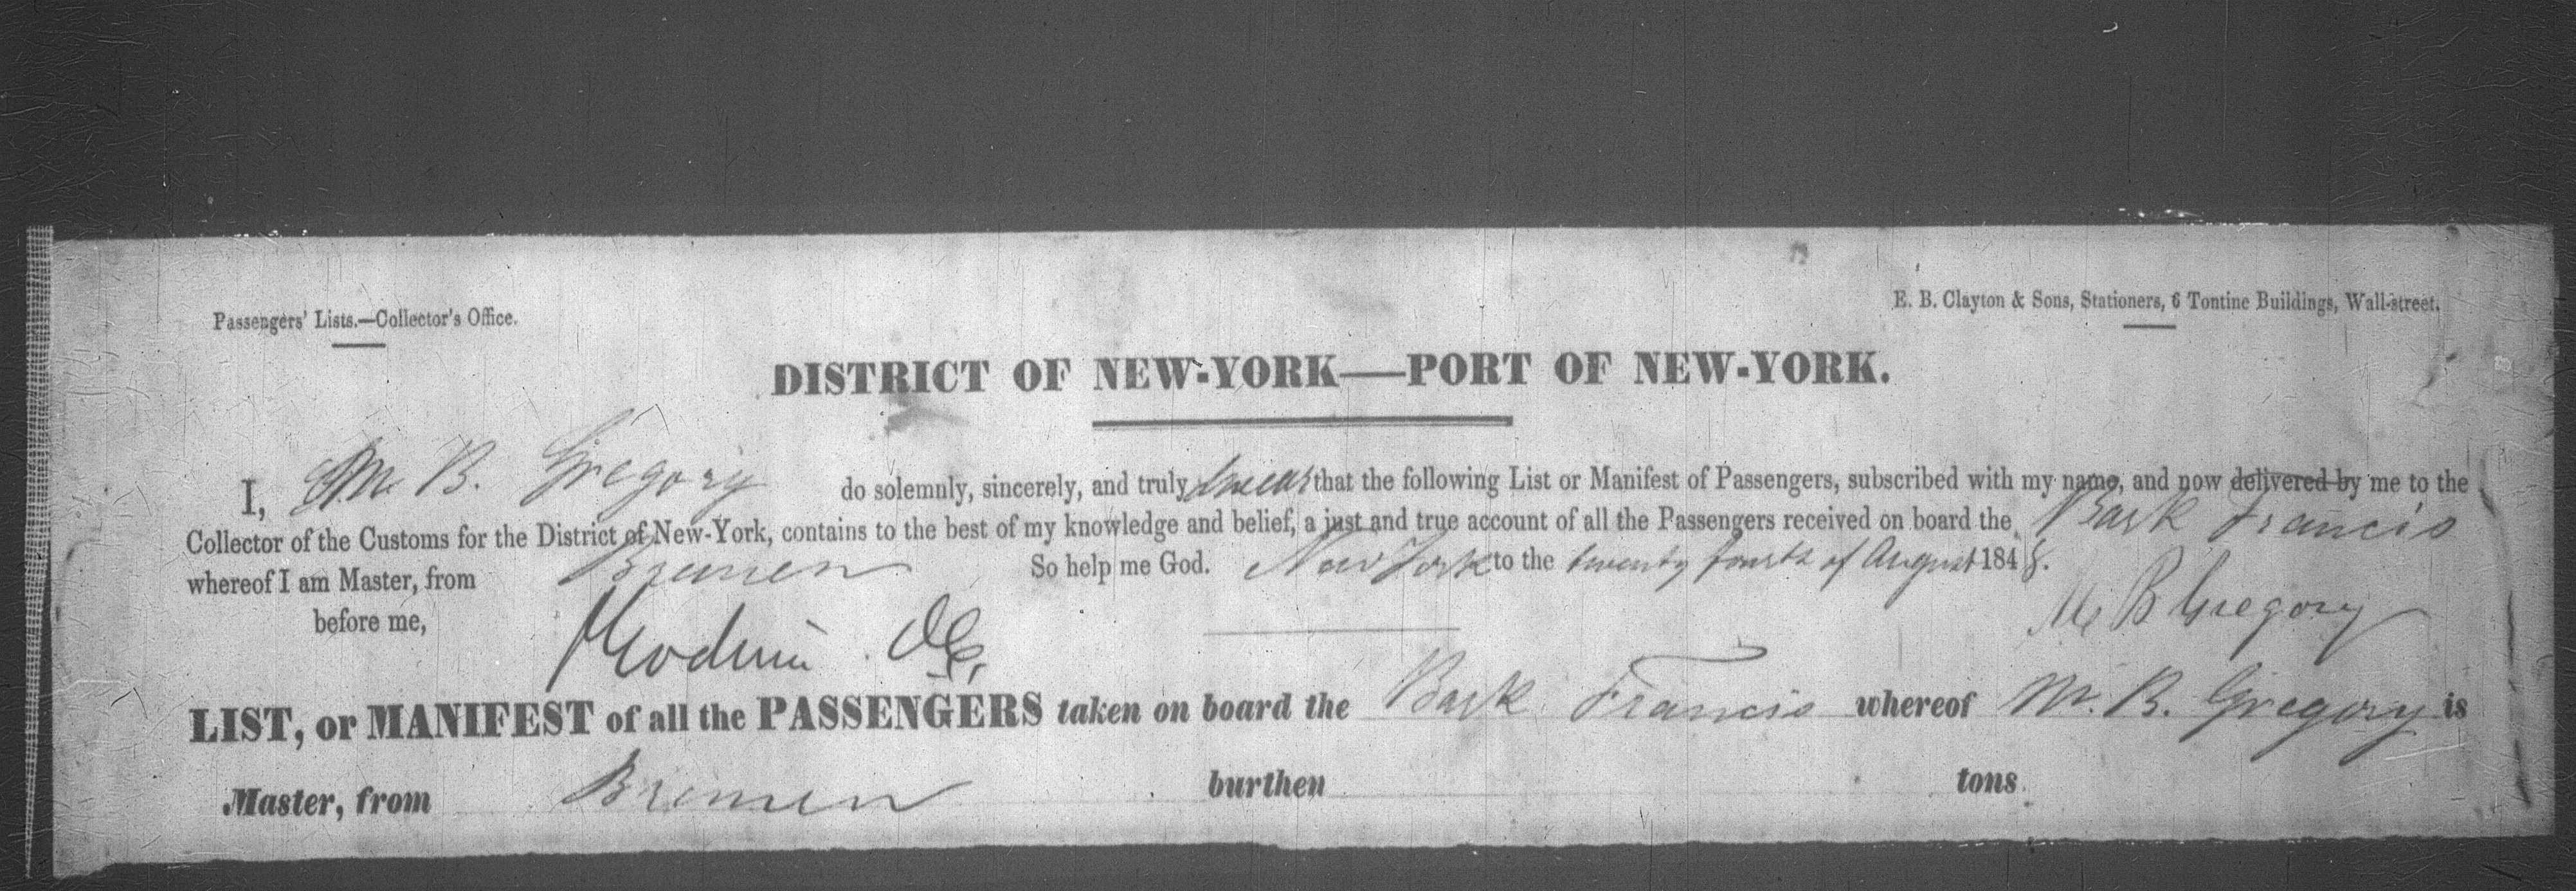 Passengers' Lists.—Collector's Office.
E. B. Clayton & Sons, Stationers, 6 Tontine Buildings, Wall-street.
DISTRICT OF NEW-YORK—PORT OF NEW-YORK.
I, M. B. Gregory do solemnly, sincerely, and truly swear that the following List or Manifest of Passengers, subscribed with my name, and now delivered by me to the
Collector of the Customs for the District of New-York, contains to the best of my knowledge and belief, a just and true account of all the Passengers received on board the Bark Francis
whereof I am Master, from Bremen So help me God. New York to the twenty fourth of August 1848.
before me, M B Gregory
LIST, or MANIFEST of all the PASSENGERS taken on board the Bark Francis whereof M. B. Gregory is
Master, from Bremen burthen tons